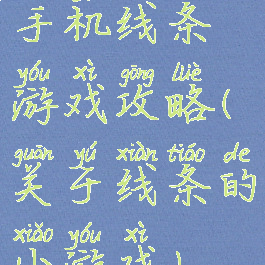 手机线条
yóu xì gōng lüè
游戏攻略(
guān yú xiàn tiáo de
关于线条的
xiǎo yóu xì
小游戏)